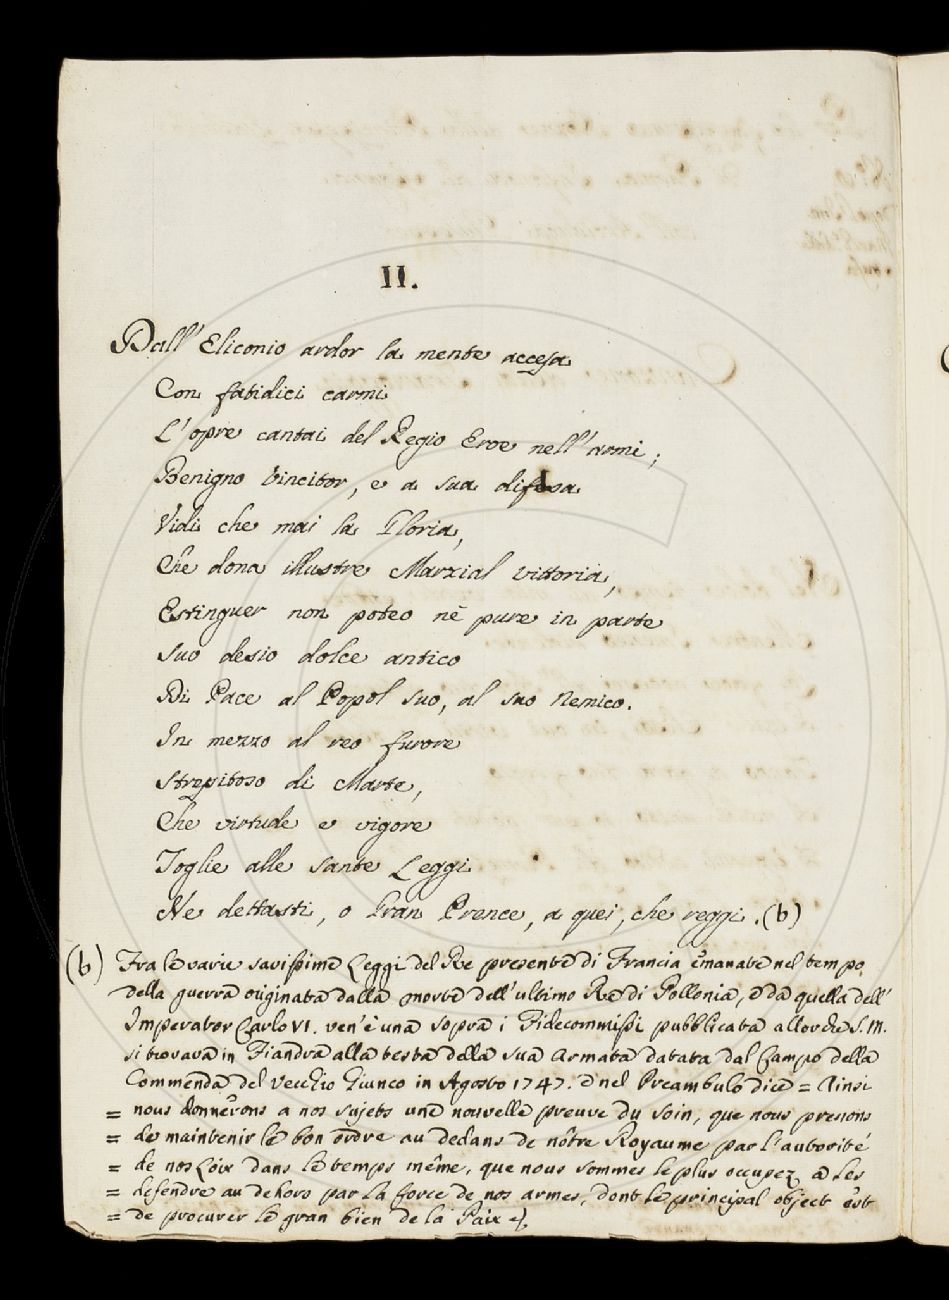 II.
Dall' Eliconio ardor la mente accesa
Con fatidici carmi
L'opre cantai del Regio Eroe nell'armi;
Benigno Vincitor, e a sua difesa
Vidi che mai la Gloria,
Che dona illustre Marzial vittoria,
Estinguer non poteo nè pure in parte
Suo desio dolce antico
Di Pace al Popol suo, al suo Nemico.
In mezzo al reo furore
Strepitoso di Marte,
Che virtude e vigore
Toglie alle sante Leggi
Ne dettasti, o Gran Prence, a quei, che reggi. (b)
(b) Fra le varie savissime Leggi del Re presente di Francia emanate nel tempo
della guerra originata dalla morte dell'ultimo Re di Pollonia, e da quella dell'
Imperator Carlo VI. ven'è una sopra i Fidecommissi pubblicata allorche S. M.
si trovava in Fiandra alla testa della sua Armata datata dal Campo della
Commenda del Vecchio Giunco in Agosto 1747. e nel Preambulo dice = Ainsi
= nous donnerons a nos sujets une nouvelle preuve du soin, que nous prenons
= de maintenir le bon ordre au dedans de nôtre Royaume par l'autorité
= de nos Loix dans le temps même, que nous sommes le plus occupez a les
= defendre au dehors par la force de nos armes, dont le principal object est
= de procurer le gran bien de la Paix